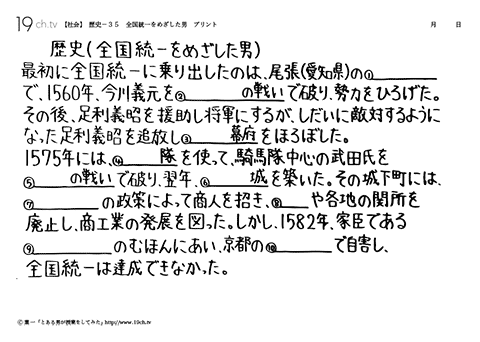 19ch.tv 【社会】 歴史-35 全国統一をめざした男 プリント 月 日
歴史(全国統一をめざした男)
最初に全国統一に乗り出したのは、尾張(愛知県)の①
で、1560年、今川義元を② の戦いで破り、勢力をひろげた。
その後、足利義昭を援助し将軍にするが、しだいに敵対するように
なった足利義昭を追放し③ 幕府をほろぼした。
1575年には、④ 隊を使って、騎馬隊中心の武田氏を
⑤ の戦いで破り、翌年、⑥ 城を築いた。その城下町には、
⑦ の政策によって商人を招き、⑧ や各地の関所を
廃止し、商工業の発展を図った。しかし、1582年、家臣である
⑨ のむほんにあい、京都の⑩ で自害し、
全国統一は達成できなかった。
Ⓒ 葉一「とある男が授業をしてみた」http://www.19ch.tv